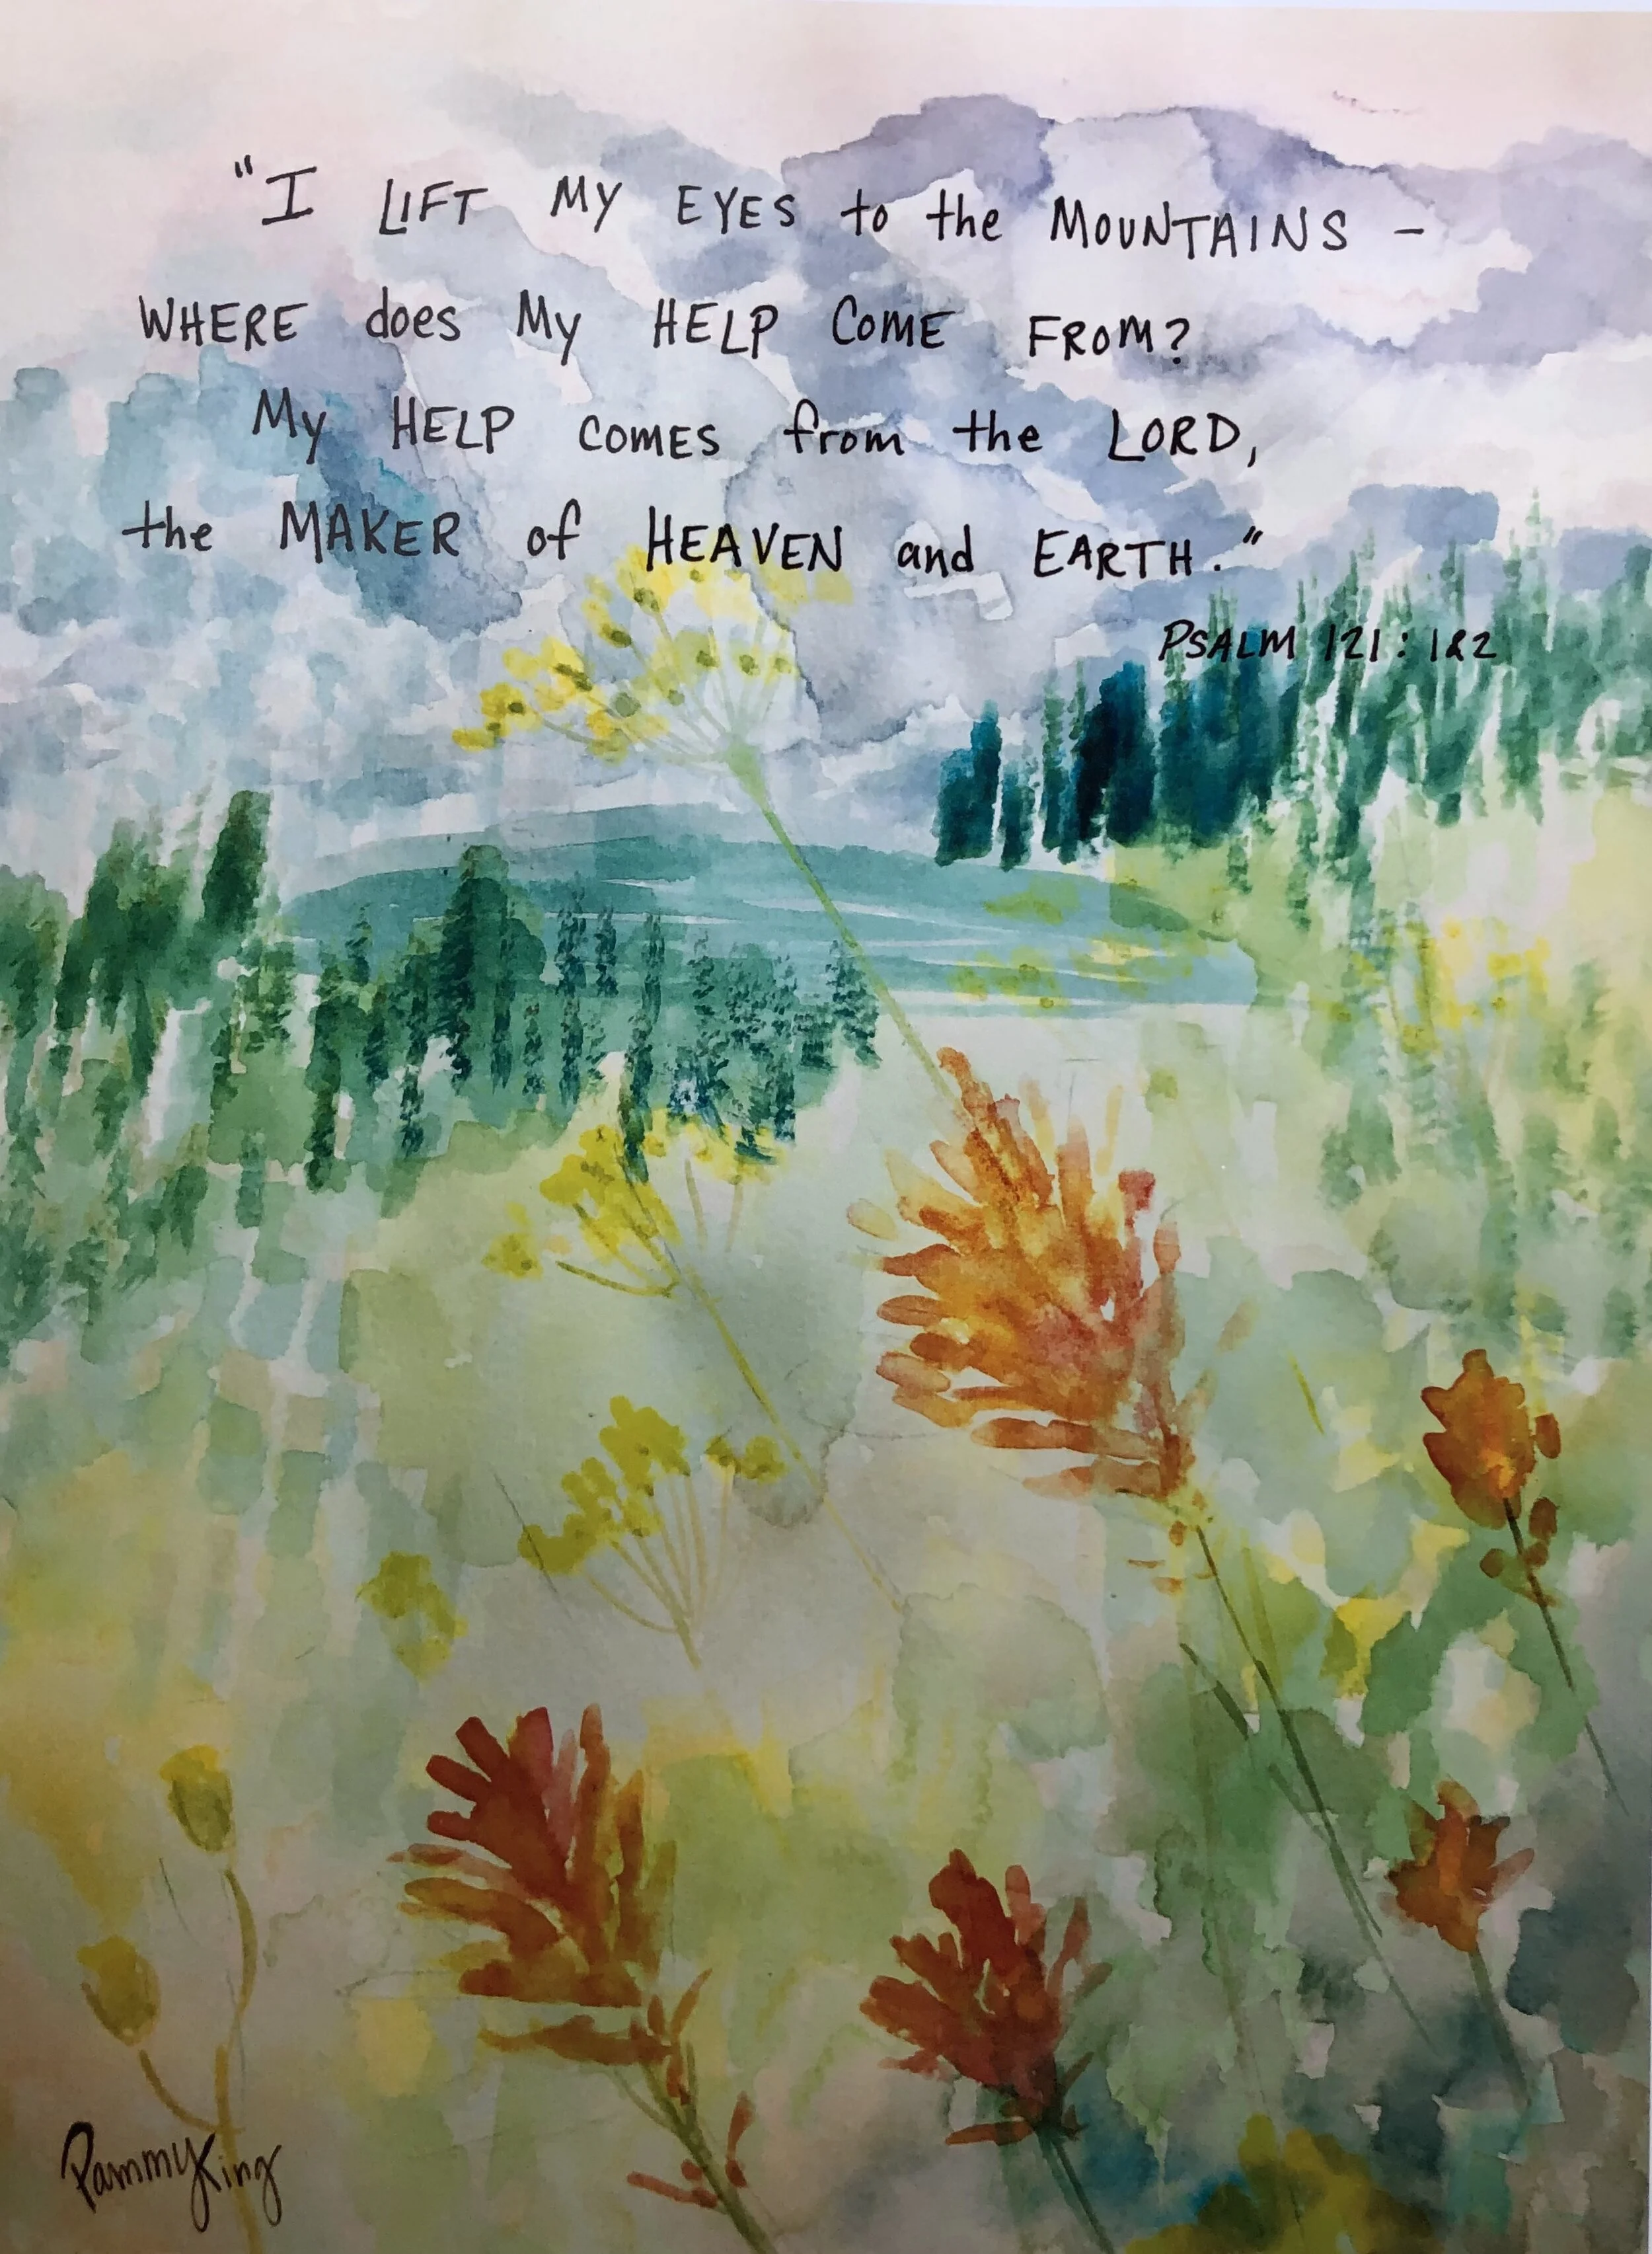 "I LIFT MY EYES to the MOUNTAINS –
WHERE does My HELP COME FROM?
My HELP COMES from the LORD,
the MAKER of HEAVEN and EARTH."
PSALM 121: 1&2
PammyKing